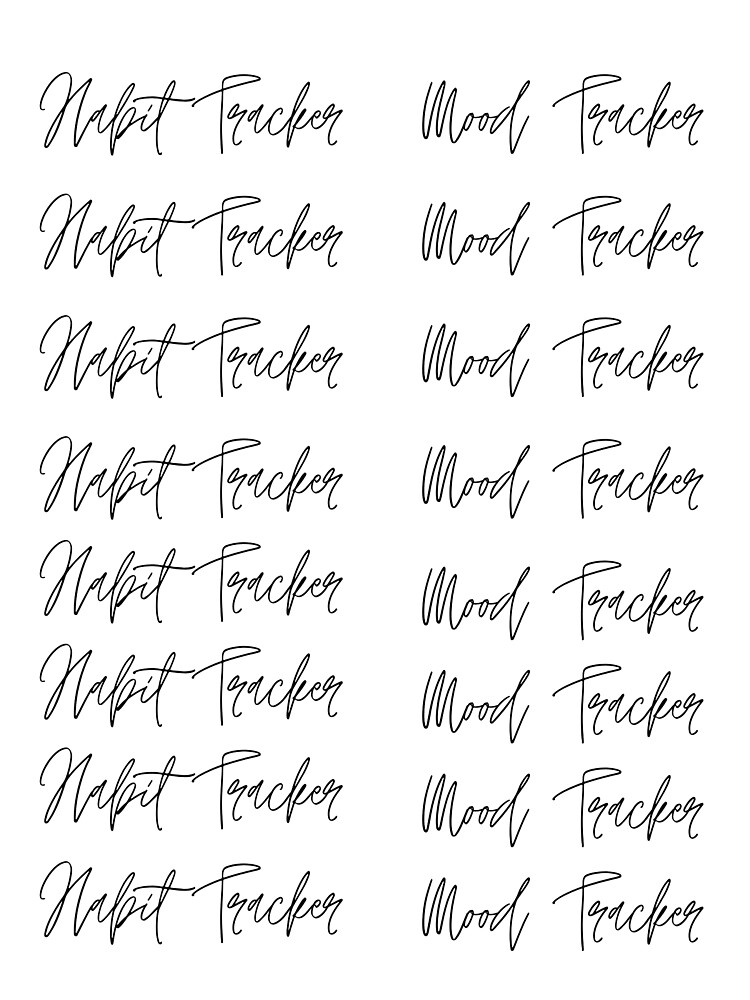 Habit Tracker Mood Tracker
Habit Tracker Mood Tracker
Habit Tracker Mood Tracker
Habit Tracker Mood Tracker
Habit Tracker Mood Tracker
Habit Tracker Mood Tracker
Habit Tracker Mood Tracker
Habit Tracker Mood Tracker